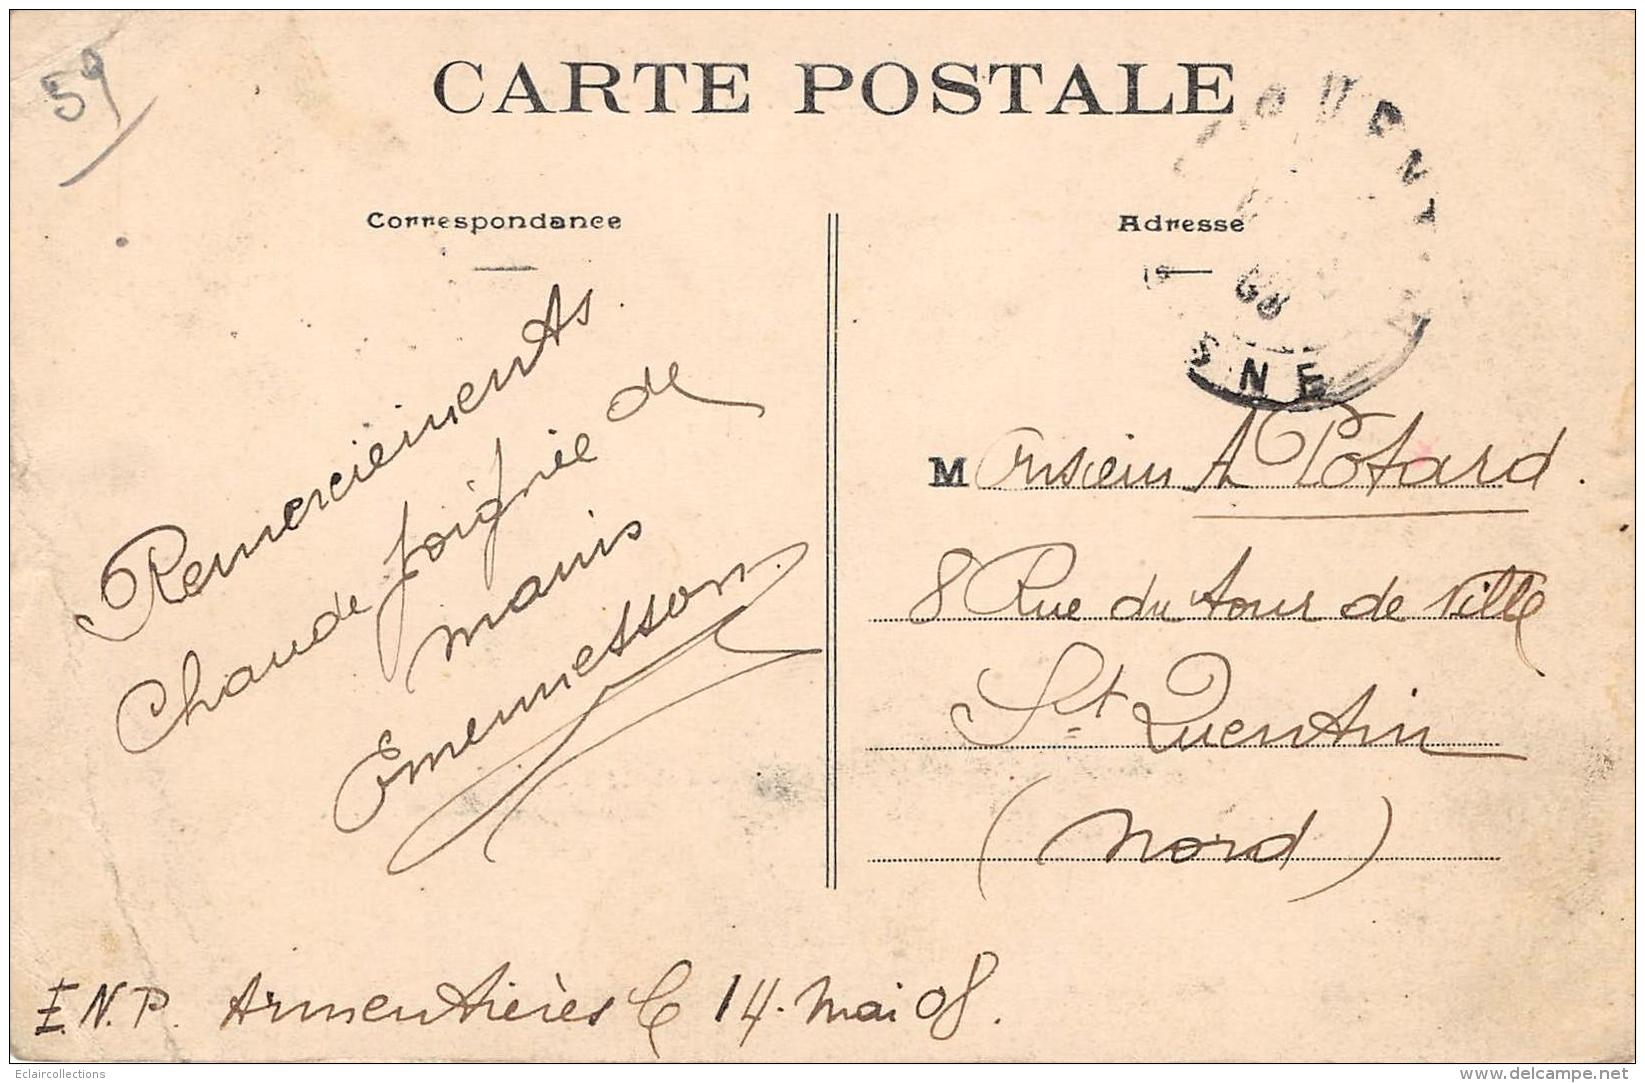 59
CARTE POSTALE
Correspondance
Remerciements
Chaude poignée de
mains
Adresse
08
SNE
Monsieur A Potard.
8 Rue du tour de Ville
St Quentin
(Nord)
E.N.P. Armentières le 14 mai 08.
Eclaircollections
www.delcampe.net